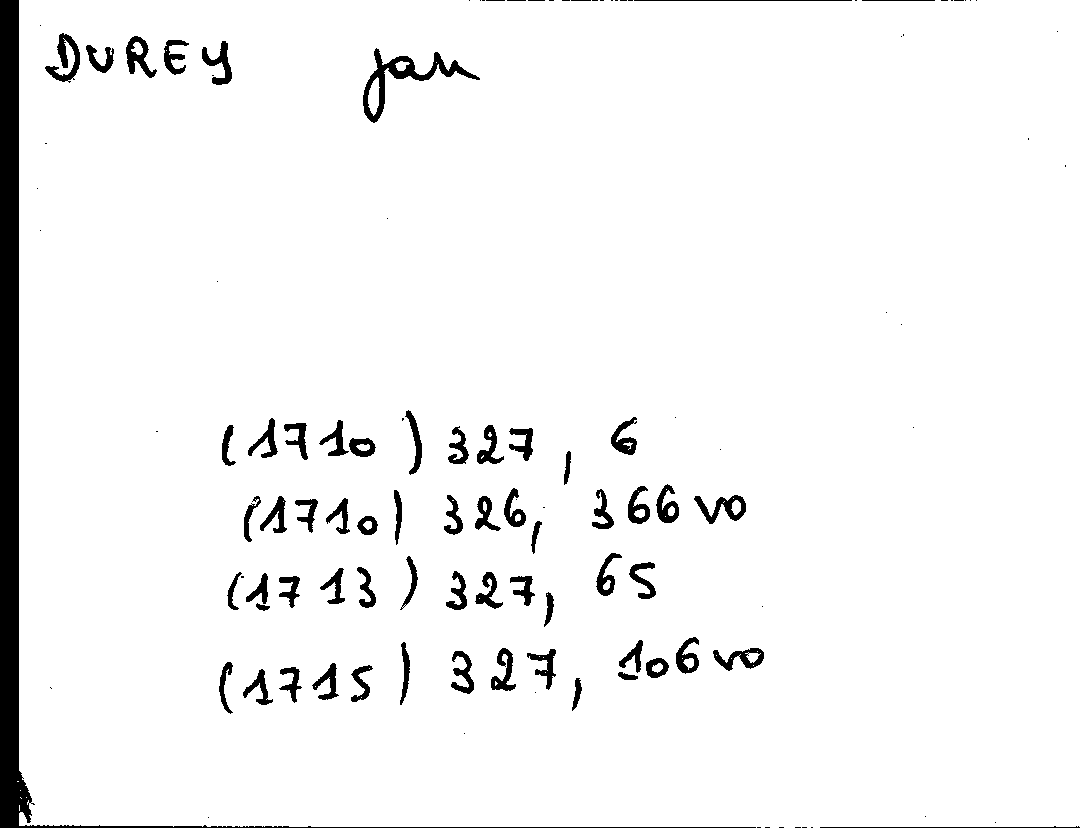 DUREY jan
(1710) 327, 6
(1710) 326, 366 vo
(1713) 327, 65
(1715) 327, 106 vo